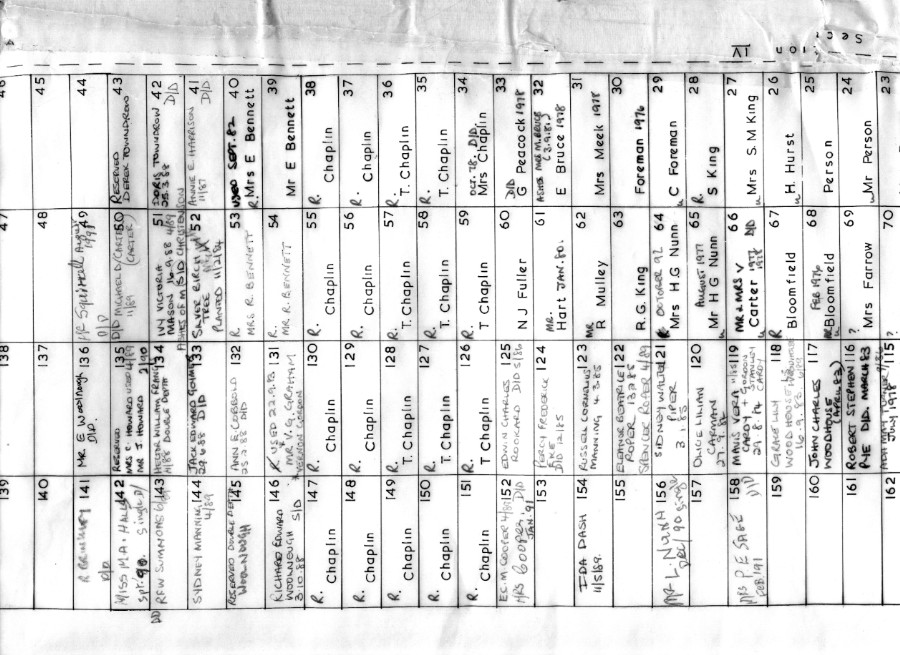 Section IV
46
45
44
43
RESERVED
DEREK TOWNDROW
42
DORIS TOWNDROW
25.3.88
D/D
41
ANNIE E. HARRISON
11/87
D/D
40
USED SEPT. 82
R. Mrs E Bennett
39
Mr E Bennett
38
R. Chaplin
37
R. Chaplin
36
R. T. Chaplin
35
R. T. Chaplin
34
OCT. 78. D/D.
Mrs Chaplin
33
D/D
G Peacock 1978
32
ASHES MRS M. BRUCE
(3.9.81)
E Bruce 1978
31
Mrs Meek 1978
30
Foreman 1976
29
C Foreman
28
R.
S King
27
Mrs S M King
26
H. Hurst
25
Person
24
Mr Person
23
47
48
49
Mr Squirrell August
1991
D/D
50
D/D MICHAEL D/CARTER
(CARTER)
11/89
51
IVY VICTORIA
MASON 16.9.88 4/89
ASHES OF M/S/D CHRISTENSON
52
SILVER BIRCH
TREE
PLANTED 11/2/84
53
R.
MRS R. BENNETT
54
R.
MR. R. BENNETT
55
R. Chaplin
56
R. Chaplin
57
R. T. Chaplin
58
R. T. Chaplin
59
R. T Chaplin
60
N J Fuller
61
MR.
Hart JAN. 80.
62
MR
R Mulley
63
R.G. King
64
R OCTOBER 92
Mrs H G Nunn
65
AUGUST 1977
Mr H G Nunn
66
MR & MRS V D/D
Carter 1977
1978
67
R
Bloomfield
68
FEB 1976
Bloomfield
69
?
Mrs Farrow
70
?
138
137
136
MR E Woolnough
D/D.
135
RESERVED
MRS E. HOWARD USED 4/89
MR J. HOWARD 2/90
134
HECTOR WILLIAM FRANK
11/88 DOUBLE DEPTH
133
JACK EDWARD
29.6.88 D/D
132
ANN E COBBOLD
25.2.88 D/D
131
R USED 22.9.83
MR V. G. GRAHAM
VERNON GORDON
130
R. Chaplin
129
R. Chaplin
128
R. T. Chaplin
127
R. T. Chaplin
126
R. T Chaplin
125
EDWIN CHARLES
D/D 5/86
124
PERCY FREDERICK
PYKE
D/D 12.85
123
RUSSEL CORNELIUS
MANNING 4.3.85
122
ELEANOR BEATRICE
ROPER 13.7.85
SPENCER ROPER 4/89
121
SIDNEY WALTER
PIPER
3.1.85
120
OLIVE LILIAN
CARMAN
27.9.84
119
MAVIS VERA
CARDY + GORDON
29.8.84 STANLEY
CARDY
118
GRACE LILY
WOODHOUSE
16.9.83.
117
JOHN CHARLES
WOODHOUSE
(APRIL 83)
116
ROBERT STEPHEN
PYE D/D. MARCH 83
115
JULY 1978
139
140
141
R BRINKLEY
D/D
142
MISS M.A. HALLS
Spt. 90. Single D/
143
REW SUMMONS 6/89
D/D
144
SYDNEY MANNING
4/89
145
RESERVED DOUBLE DEPTH
WOOLNOUGH
146
RICHARD EDWARD
WOOLNOUGH S/D
3.10.88
147
R. Chaplin
148
R. Chaplin
149
R. T. Chaplin
150
R. T. Chaplin
151
R. T Chaplin
152
E.C. M. COOPER 4/81
MRS COOPER. D/D
JAN. 91
153
154
IDA DASH
11/5/89.
155
156
MR L. NUNN
DEC/90 Single
157
158
MRS P E SAGE
FEB 1991
D/D
159
160
161
162